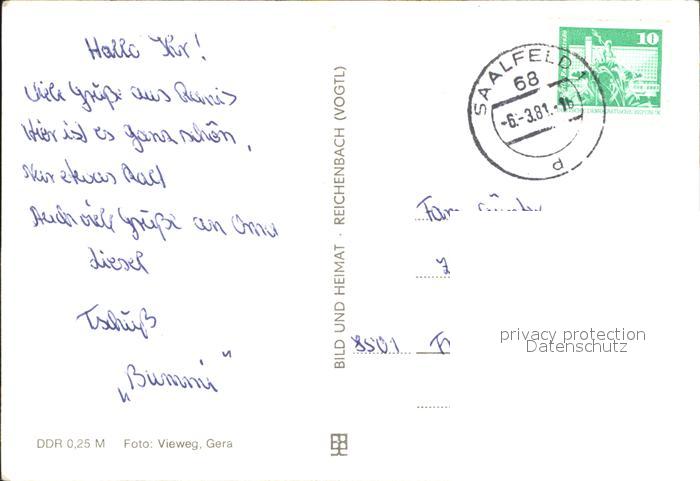 Hallo Ihr!
Viele Grüße aus Ranis
Hier ist es ganz schön,
Nur etwas kalt
Auch viele Grüße an Oma
Liesel
Tschüß
"Bummi"
DDR 0,25 M Foto: Vieweg, Gera
BILD UND HEIMAT · REICHENBACH (VOGTL)
SAALFELD 1
68
-6.-3.81.-16
d
10
Fam.
8501
privacy protection
Datenschutz